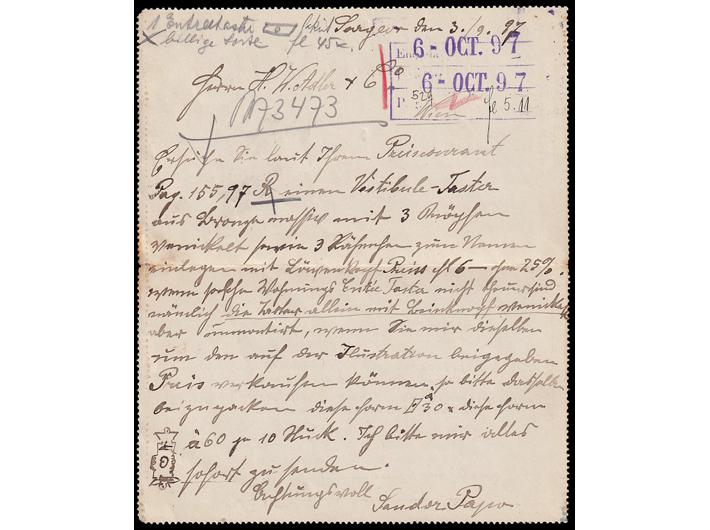 1 Entreetaster
billige Sorte fl 45
Sarajevo den 3./9. 97
6 - OCT. 97
6 - OCT. 97
Herrn H. W. Adler & Co
73473
Wien
fl 5.11
Ersuche Sie laut Ihrem Preiscourant
Pag. 155, 97 einen Vestibule-Taster
aus Bronze massiv mit 3 Knöpfen
vernickelt sowie 3 Rähmchen zum Namen
einlegen mit Löwenkopf Preis fl 6 — 25%.
wenn solche Wohnungs Entrée Taster nicht theuer sind
nämlich die Taster allein mit Beinknopf vernickelt
aber unmontirt, wenn Sie mir dieselben
um den auf der Ilustration beigegeben
Preis verkaufen können, so bitte dasselbe
beizupacken diese Form 30 & diese Form
à 60 je 10 Stück. Ich bitte mir alles
sofort zu senden.
Achtungsvoll
Sandor Papo